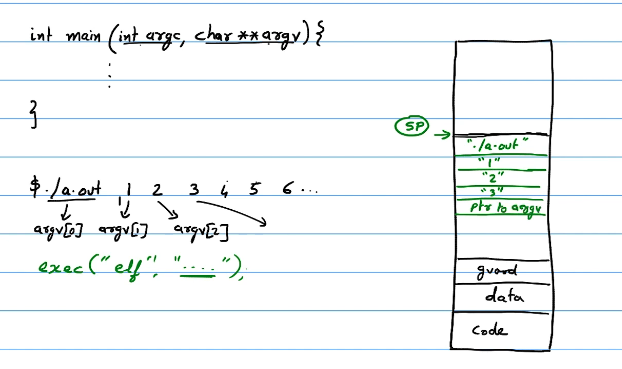 int main (int argc, char **argv) {
⋮
}
$ ./a.out 1 2 3 4 5 6 ...
argv[0] argv[1] argv[2]
exec("elf", "....");
SP
"./a.out"
"1"
"2"
"3"
ptr to argv
guard
data
code